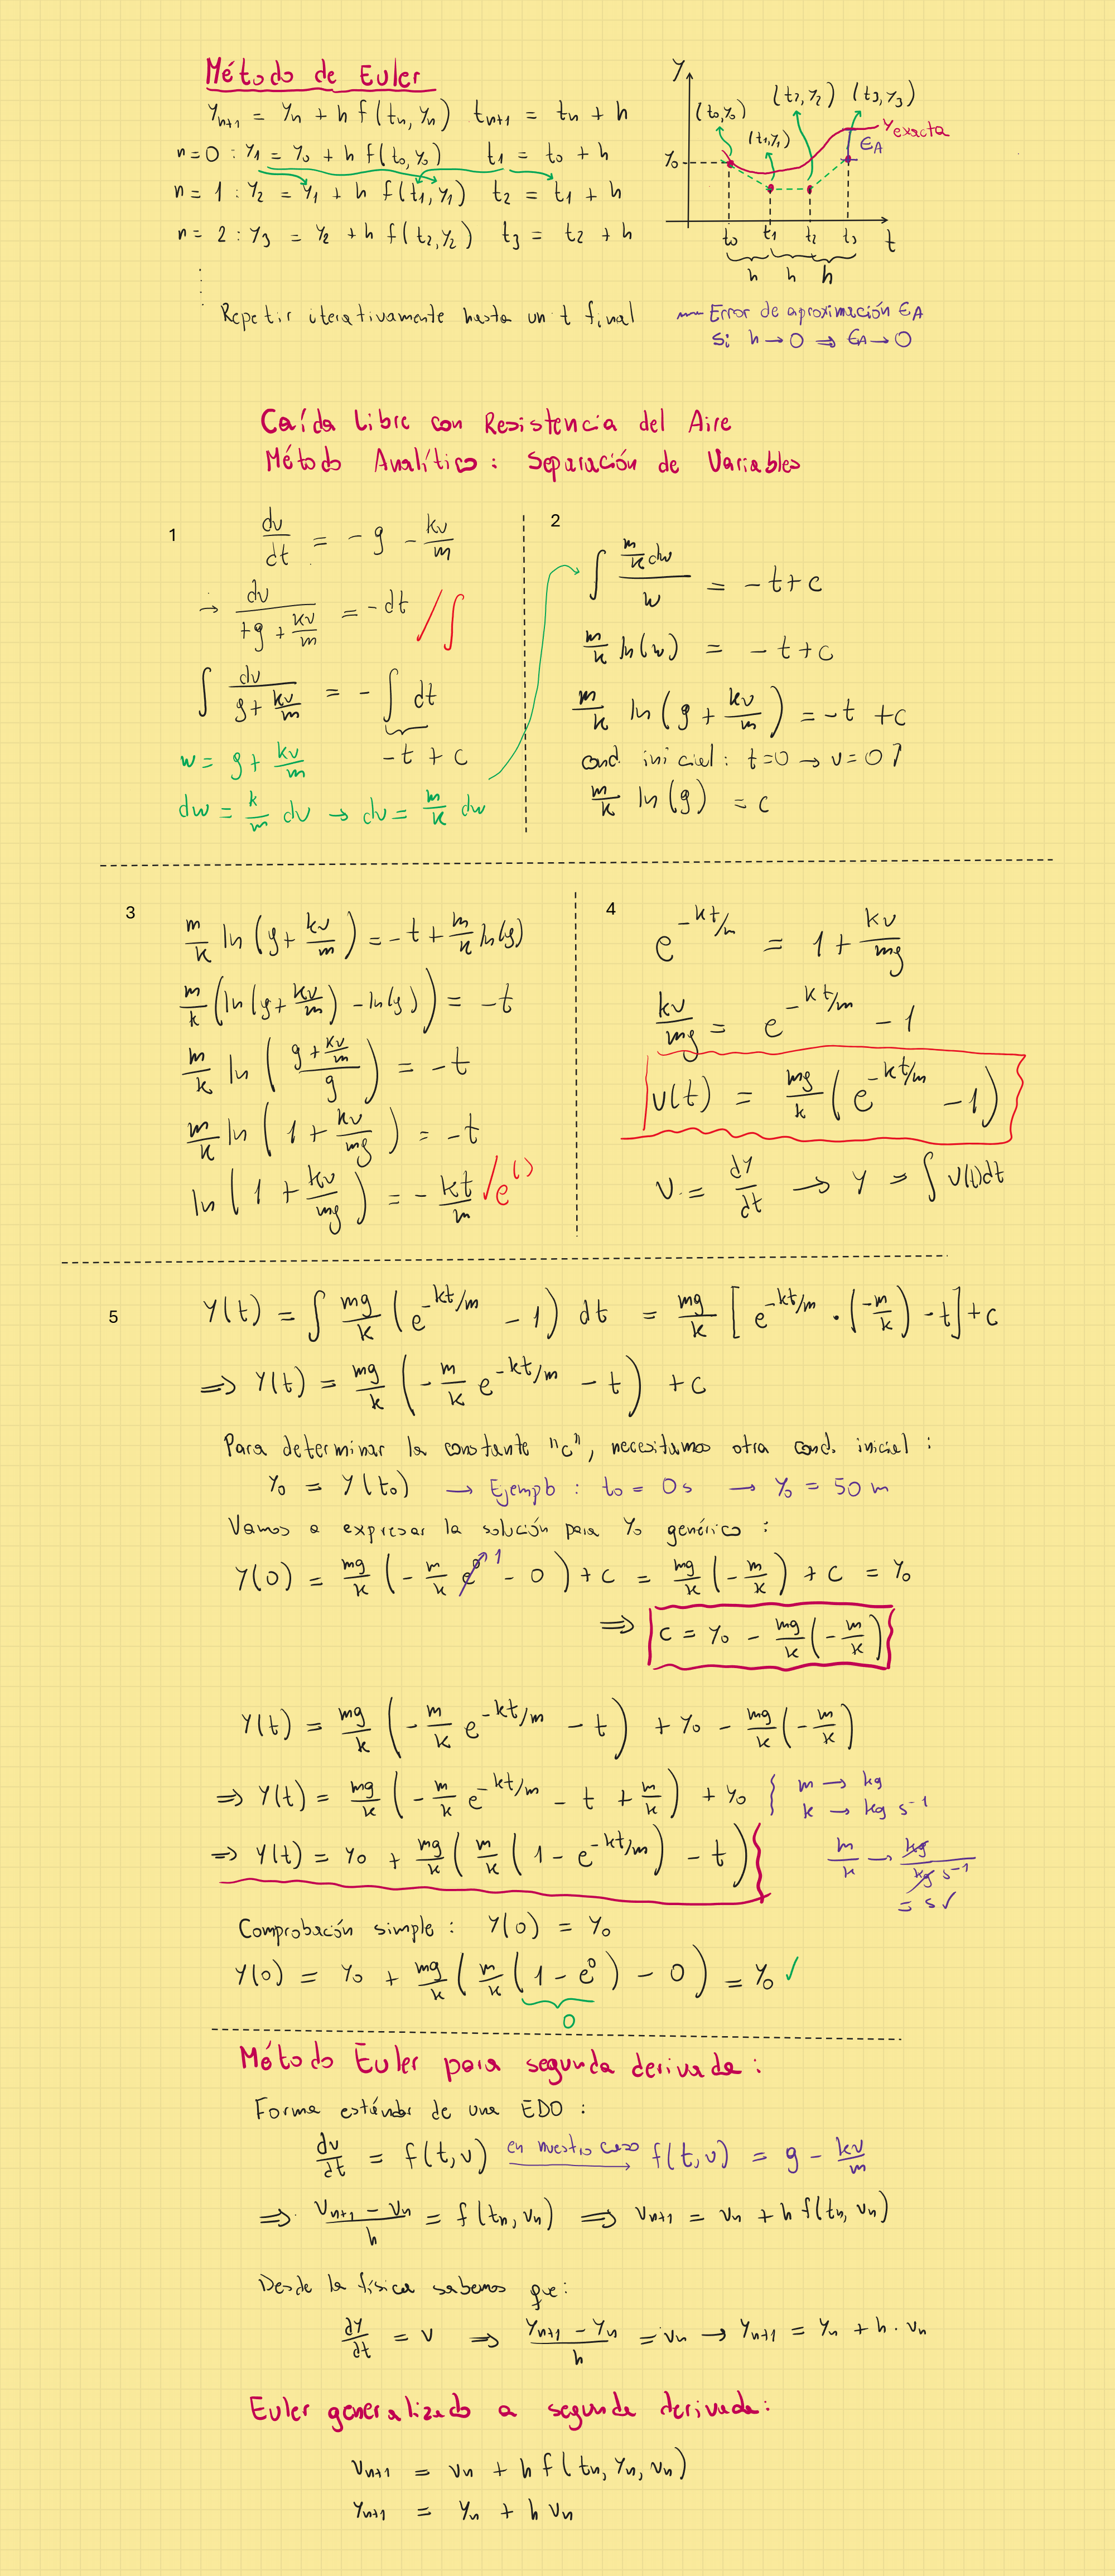 Método de Euler
yn+1 = yn + h f(tn, yn)   tn+1 = tn + h
n=0 : y1 = y0 + h f(t0, y0)   t1 = t0 + h
n=1 : y2 = y1 + h f(t1, y1)   t2 = t1 + h
n=2 : y3 = y2 + h f(t2, y2)   t3 = t2 + h
Repetir iterativamente hasta un t final
y
(t0, y0)
(t1, y1)
(t2, y2)
(t3, y3)
y exacta
ЄA
y0
t0 t1 t2 t3 t
h h h
Error de aproximación ЄA
Si h → 0 ⇒ ЄA → 0
Caída Libre con Resistencia del Aire
Método Analítico : Separación de Variables
1
dv/dt = - g - kv/m
→ dv/(+g + kv/m) = -dt / ∫
∫ dv/(g + kv/m) = - ∫ dt
w = g + kv/m   -t + c
dw = k/m dv → dv = m/k dw
2
∫ (m/k dw)/w = -t + c
m/k ln(w) = -t + c
m/k ln(g + kv/m) = -t + c
cond. inicial : t=0 → v=0
m/k ln(g) = c
3
m/k ln(g + kv/m) = -t + m/k ln(g)
m/k (ln(g + kv/m) - ln(g)) = -t
m/k ln((g + kv/m)/g) = -t
m/k ln(1 + kv/mg) = -t
ln(1 + kv/mg) = - kt/m / e^( )
4
e^(-kt/m) = 1 + kv/mg
kv/mg = e^(-kt/m) - 1
v(t) = mg/k (e^(-kt/m) - 1)
v = dy/dt → y = ∫ v(t)dt
5
y(t) = ∫ mg/k (e^(-kt/m) - 1) dt = mg/k [e^(-kt/m) · (-m/k) - t] + c
⇒ y(t) = mg/k (-m/k e^(-kt/m) - t) + c
Para determinar la constante "c", necesitamos otra cond. inicial :
y0 = y(t0) → Ejemplo : t0 = 0s → y0 = 50 m
Vamos a expresar la solución para y0 genérico :
y(0) = mg/k (-m/k e^0 1 - 0) + c = mg/k (-m/k) + c = y0
⇒ c = y0 - mg/k (-m/k)
y(t) = mg/k (-m/k e^(-kt/m) - t) + y0 - mg/k (-m/k)
⇒ y(t) = mg/k (-m/k e^(-kt/m) - t + m/k) + y0 { m → kg
k → kg s^-1
⇒ y(t) = y0 + mg/k (m/k (1 - e^(-kt/m)) - t)
m/k → kg/(kg s^-1)
= s ✓
Comprobación simple : y(0) = y0
y(0) = y0 + mg/k (m/k (1 - e^0) - 0) = y0 ✓
0
Método Euler para segunda derivada :
Forma estándar de una EDO :
dv/dt = f(t, v) en nuestro caso → f(t, v) = g - kv/m
⇒ (vn+1 - vn)/h = f(tn, vn) ⇒ vn+1 = vn + h f(tn, vn)
Desde la física sabemos que :
dy/dt = v ⇒ (yn+1 - yn)/h = vn → yn+1 = yn + h · vn
Euler generalizado a segunda derivada :
vn+1 = vn + h f(tn, yn, vn)
yn+1 = yn + h vn